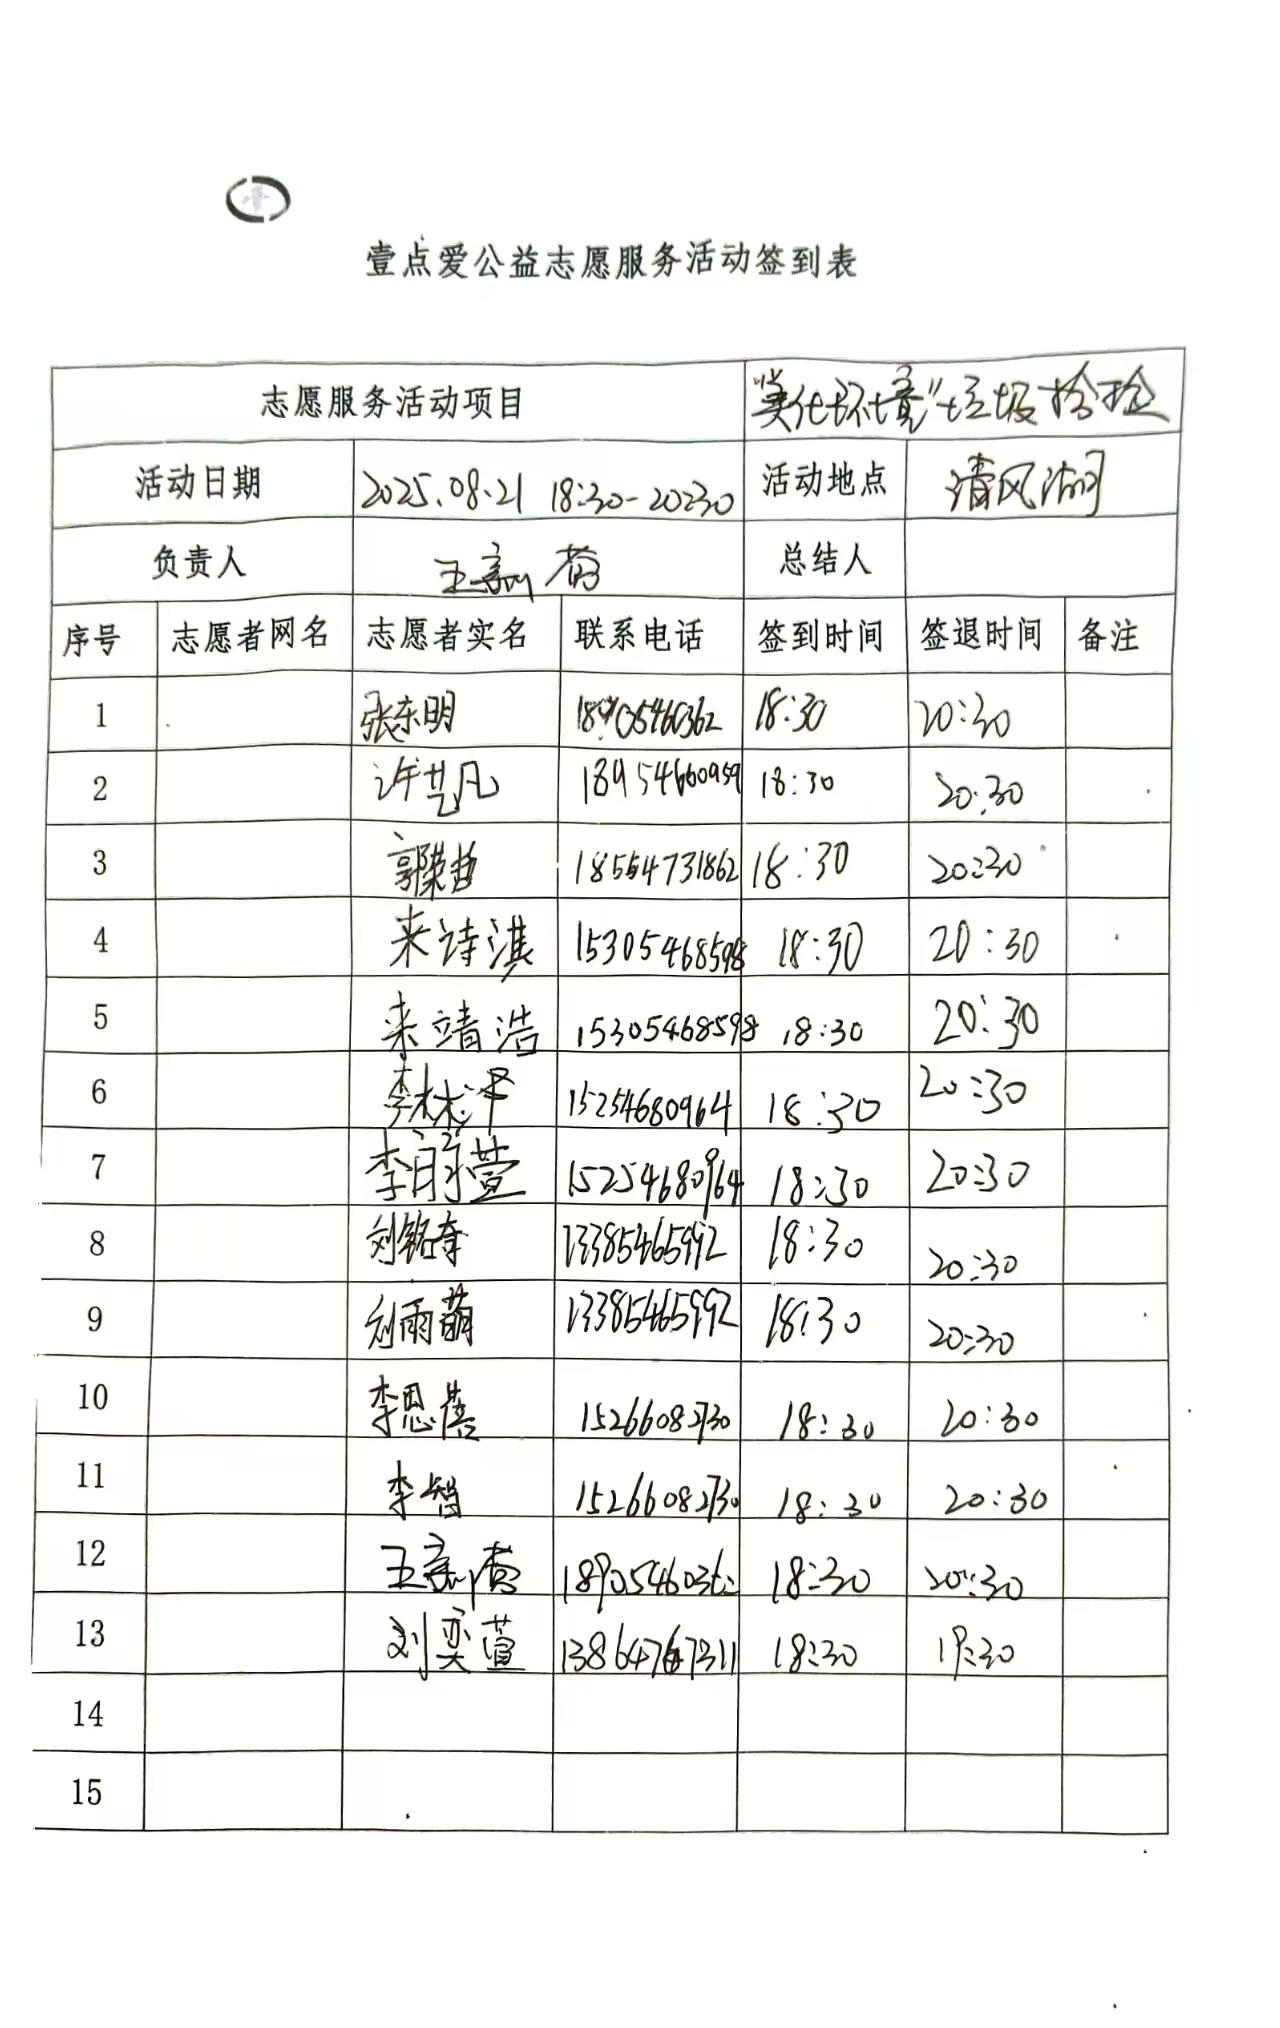 壹点爱公益志愿服务活动签到表
志愿服务活动项目 "美化环境"垃圾捡捡
活动日期 2025.08.21 18:30-20:30 活动地点 清风湖
负责人 王嘉 总结人
序号 志愿者网名 志愿者实名 联系电话 签到时间 签退时间 备注
1 张东明 18905460362 18:30 20:30
2 许艺凡 18954660959 18:30 20:30
3 郭荣哲 18554731862 18:30 20:30
4 来诗淇 15305468598 18:30 20:30
5 来靖浩 15305468598 18:30 20:30
6 李林泽 15254680964 18:30 20:30
7 李雨萱 15254680964 18:30 20:30
8 刘铭奇 13385465992 18:30 20:30
9 刘雨萌 13385465992 18:30 20:30
10 李思蓓 15266082730 18:30 20:30
11 李智 15266082730 18:30 20:30
12 王嘉 18:30 20:30
13 刘奕萱 13864767311 18:30 19:30
14
15